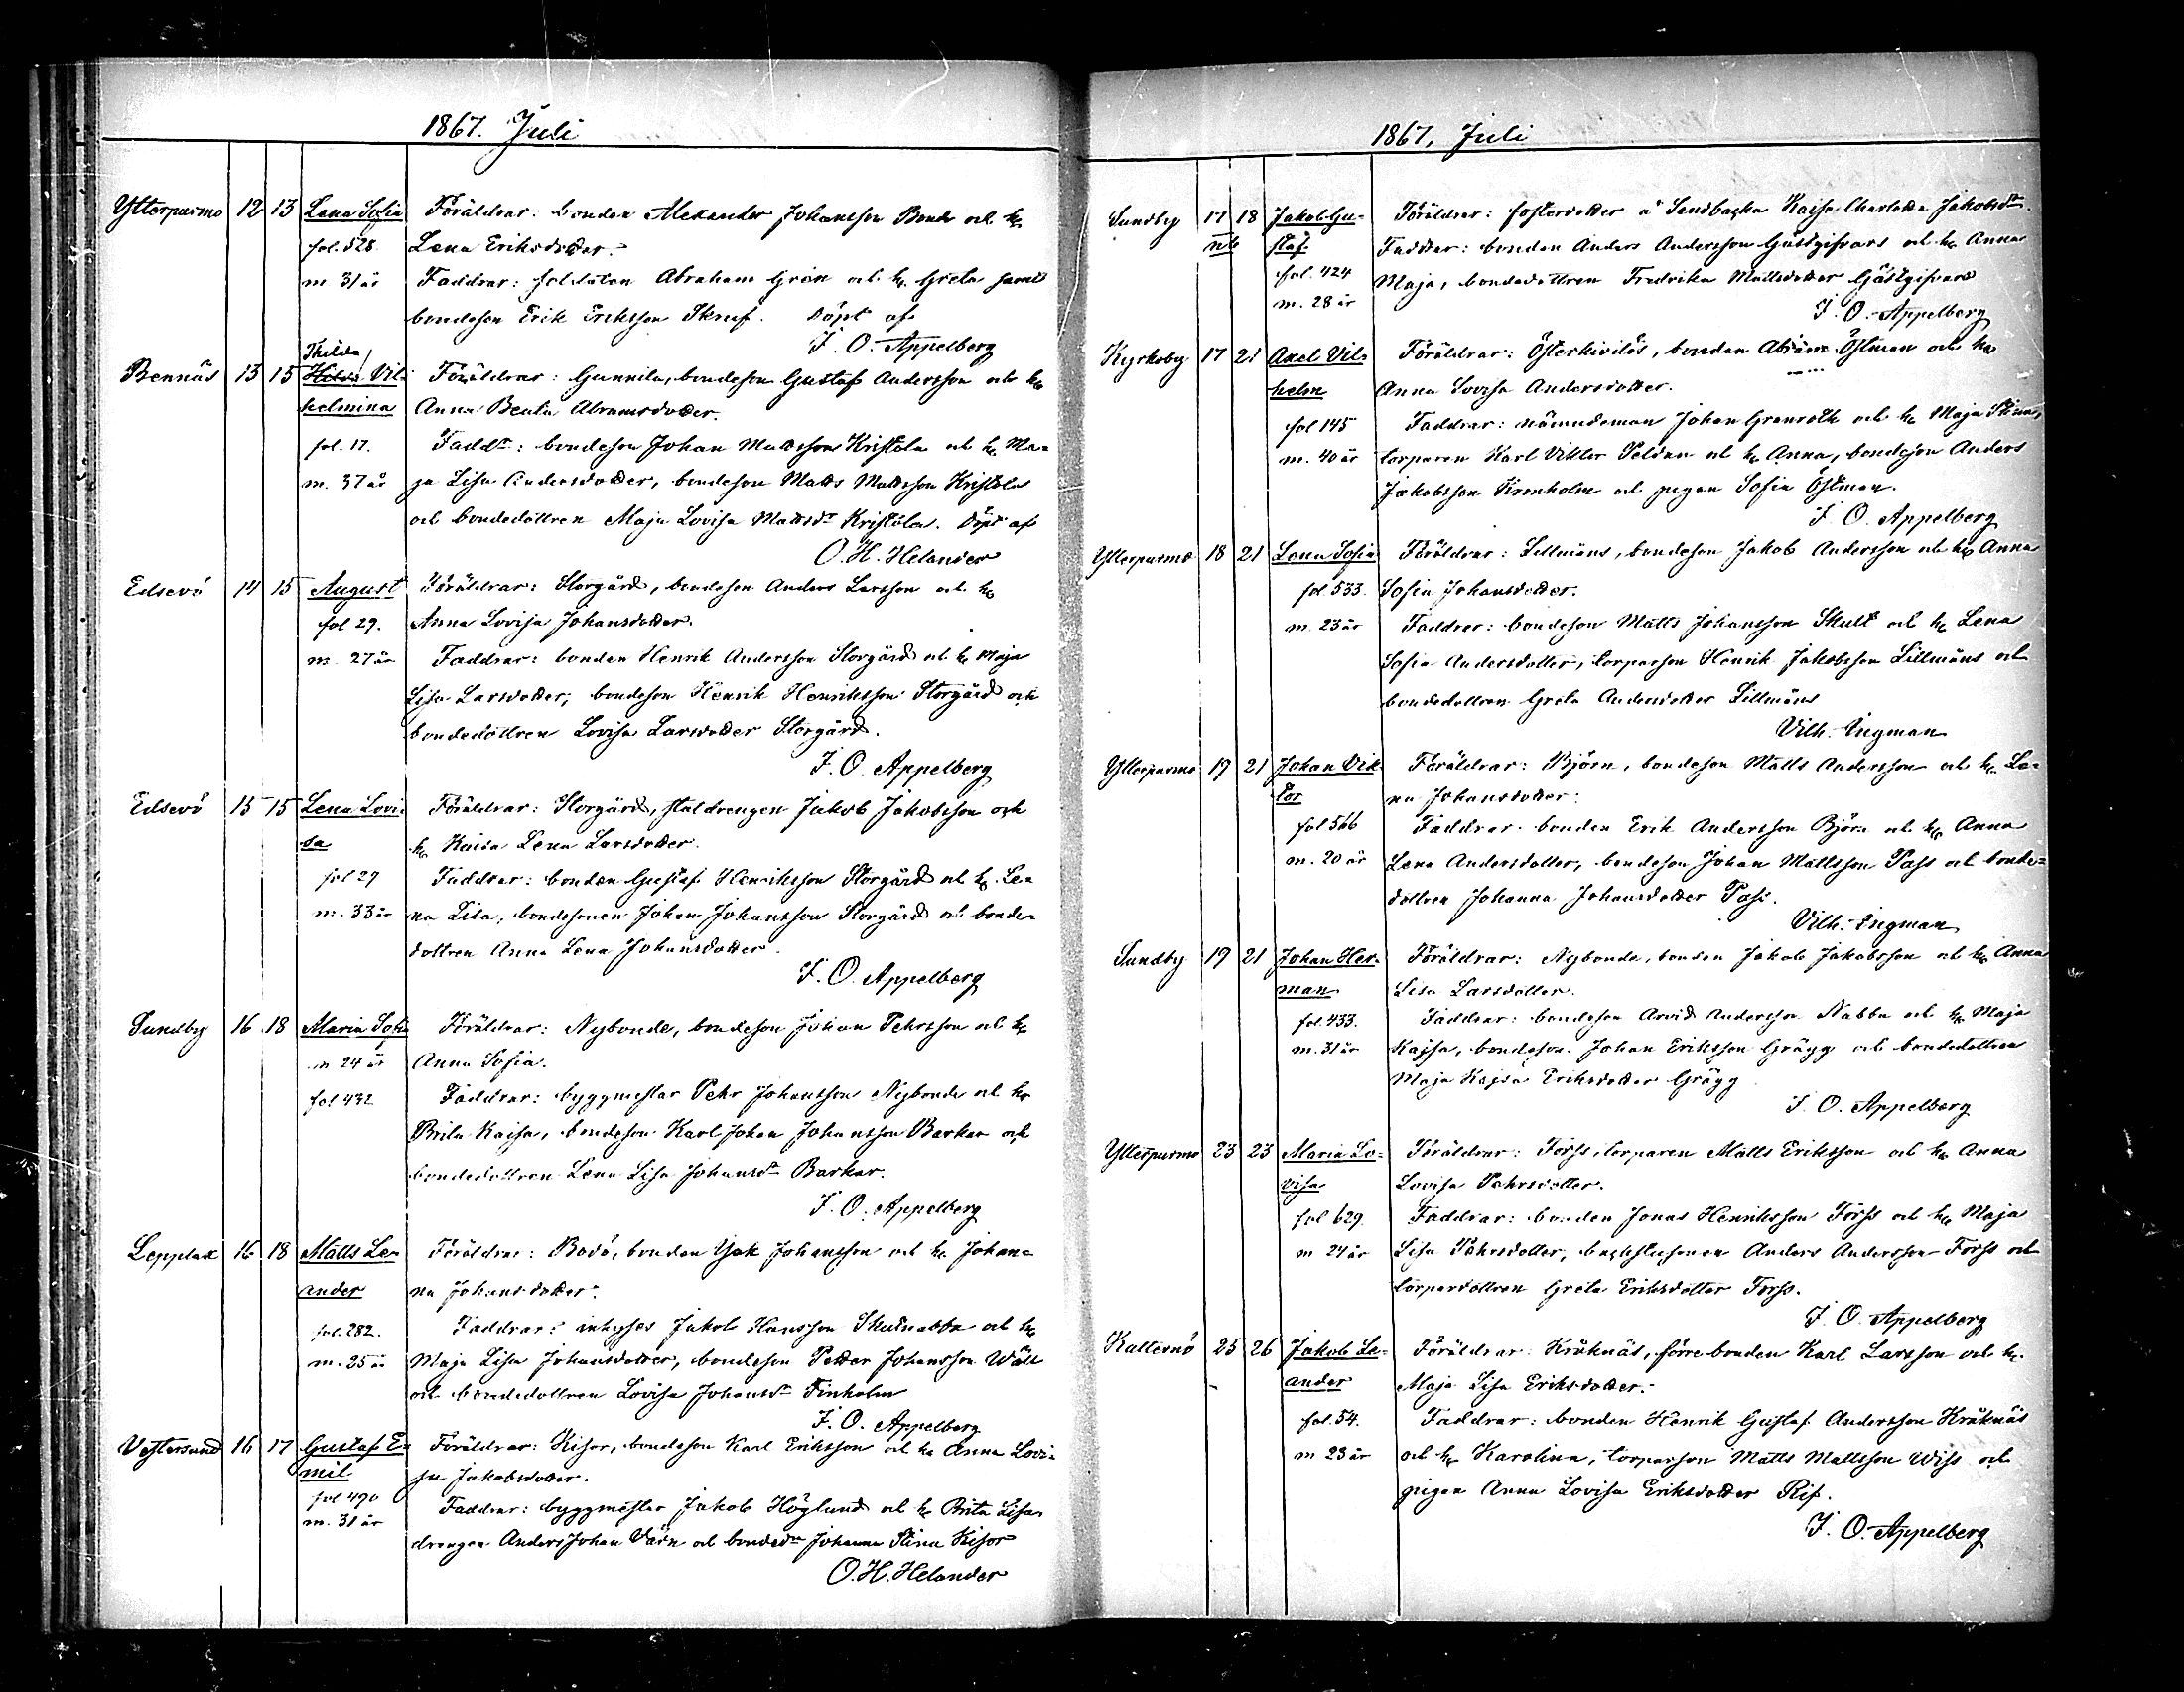 1867. Juli
Ytterpurmo 12 13 Lena Sofia Föräldrar: bonden Alexander Johansson Bonde och h.
fol. 528 Lena Eriksdotter.
m 31 år Faddrar: soldaten Abraham Grön och h. Greta samt
bondeson Erik Eriksson Skruf. Döpt af
F. O. Appelberg
Thilda
Bennäs 13 15 Hilda Vil- Föräldrar: Gunnila, bondeson Gustaf Andersson och h.
helmina Anna Beata Abramsdotter.
fol. 17. Faddr: bondeson Johan Mattsson Kristola och h. Ma-
m. 37 år ja Lisa Andersdotter, bondeson Matts Mattsson Kristola
och bondedottren Maja Lovisa Mattsdr Kristola. Döpt af
O. H. Helander
Edsevö 14 15 August Föräldrar: Storgård, bondeson Anders Larsson och h.
fol 29. Anna Lovisa Johansdotter.
m. 27 år Faddrar: bonden Henrik Andersson Storgård och h. Maja
Lisa Larsdotter, bondeson Henrik Henriksson Storgård och
bondedottren Lovisa Larsdotter Storgård.
F. O. Appelberg
Edsevö 15 15 Lena Lovi- Föräldrar: Storgård, staldrengen Jakob Jakobsson och
sa h. Kaisa Lena Larsdotter.
fol 29 Faddrar: bonden Gustaf Henriksson Storgård och h. Le-
m. 33 år na Lisa, bondesonen Johan Johansson Storgård och bonde-
dottren Anna Lena Johansdotter.
F. O. Appelberg
Sundby 16 18 Maria Sofia Föräldrar: Nybonde, bondeson Johan Pehrsson och h.
m 24 år Anna Sofia.
fol 432 Faddrar: byggmestar Pehr Johansson Nybonde och h.
Brita Kaisa, bondeson Karl Johan Johansson Barkar och
bondedottren Lena Lisa Johansdr Barkar.
F. O. Appelberg
Lepplax 16 18 Matts Le- Föräldrar: Bodö, bonden Isak Johansson och h. Johan-
ander na Johansdotter.
fol. 282. Faddrar: inhyses Jakob Hansson Skutnabba och h.
m. 25 år Maja Lisa Johansdotter, bondeson Petter Johansson Wäst
och bondedottren Lovisa Johansdr Finholm
F. O. Appelberg
Vestersund 16 17 Gustaf E- Föräldrar: Kisor, bondeson Karl Eriksson och h. Anna Lovi-
mil sa Jakobsdotter.
fol 490 Faddrar: byggmestar Jakob Höglund och h. Brita Lisa
m. 31 år drengen Anders Johan Värn och bondedr Johanna Stina Kisor
O. H. Helander
1867, Juli
Sundby 17 18 Jakob Gu- Föräldrar: fosterdotter å Sandbacka Kajsa Charlotta Jakobsdr.
staf Faddrar: bonden Anders Andersson Gästgifvars och h. Anna
fol. 424 Maja, bondedottren Fredrika Mattsdotter Gästgifvars
m. 28 år
F. O. Appelberg
Kyrkoby 17 21 Axel Vil- Föräldrar: Österkivilös, bonden Abram Östman och h.
helm Anna Lovisa Andersdotter.
fol 145 Faddrar: nämndeman Johan Granroth och h. Maja Stina,
m. 40 år torparen Karl Viktor Peldan och h. Anna, bondeson Anders
Jakobsson Kronholm och pigan Sofia Östman.
F. O. Appelberg
Ytterpurmo 18 21 Lena Sofia Föräldrar: Lillmåns, bondeson Jakob Andersson och h. Anna
fol 533. Sofia Johansdotter.
m. 23 år Faddrar: bondeson Matts Johansson Skult och h. Lena
Sofia Andersdotter, torparson Henrik Jakobsson Lillmåns och
bondedottren Greta Andersdotter Lillmåns
Vilh. Ingman
Ytterpurmo 19 21 Johan Vik- Föräldrar: Björn, bondeson Matts Andersson och h. Le-
tor na Johansdotter.
fol 566 Faddrar: bonden Erik Andersson Björn och h. Anna
m. 20 år Lena Andersdotter, bondeson Johan Mattsson Pass och bonde-
dottren Johanna Johansdotter Pass.
Vilh. Ingman
Sundby 19 21 Johan Her- Föräldrar: Nybonde, bonden Jakob Jakobsson och h. Anna
man Lisa Larsdotter.
fol. 433. Faddrar: bondeson Arvid Andersson Nabba och h. Maja
m. 31 år Kajsa, bondeson Johan Eriksson Grägg och bondedottren
Maja Kajsa Eriksdotter Grägg
F. O. Appelberg
Ytterpurmo 23 23 Maria Lo- Föräldrar: Forss, torparen Matts Eriksson och h. Anna
visa Lovisa Pehrsdotter.
fol 629. Faddrar: bonden Jonas Henriksson Forss och h. Maja
m 24 år Lisa Pehrsdotter, Anders Andersson Forss och
torpardottren Greta Eriksdotter Forss.
F. O. Appelberg
Katternö 25 26 Jakob Le- Föräldrar: Kråknäs, förre bonden Karl Larsson och h.
ander Maja Lisa Eriksdotter.
fol. 54. Faddrar: bonden Henrik Gustaf Andersson Kråknäs
m 23 år och h. Karolina, torparson Matts Mattsson Wiss och
pigan Anna Lovisa Eriksdotter Rif.
F. O. Appelberg